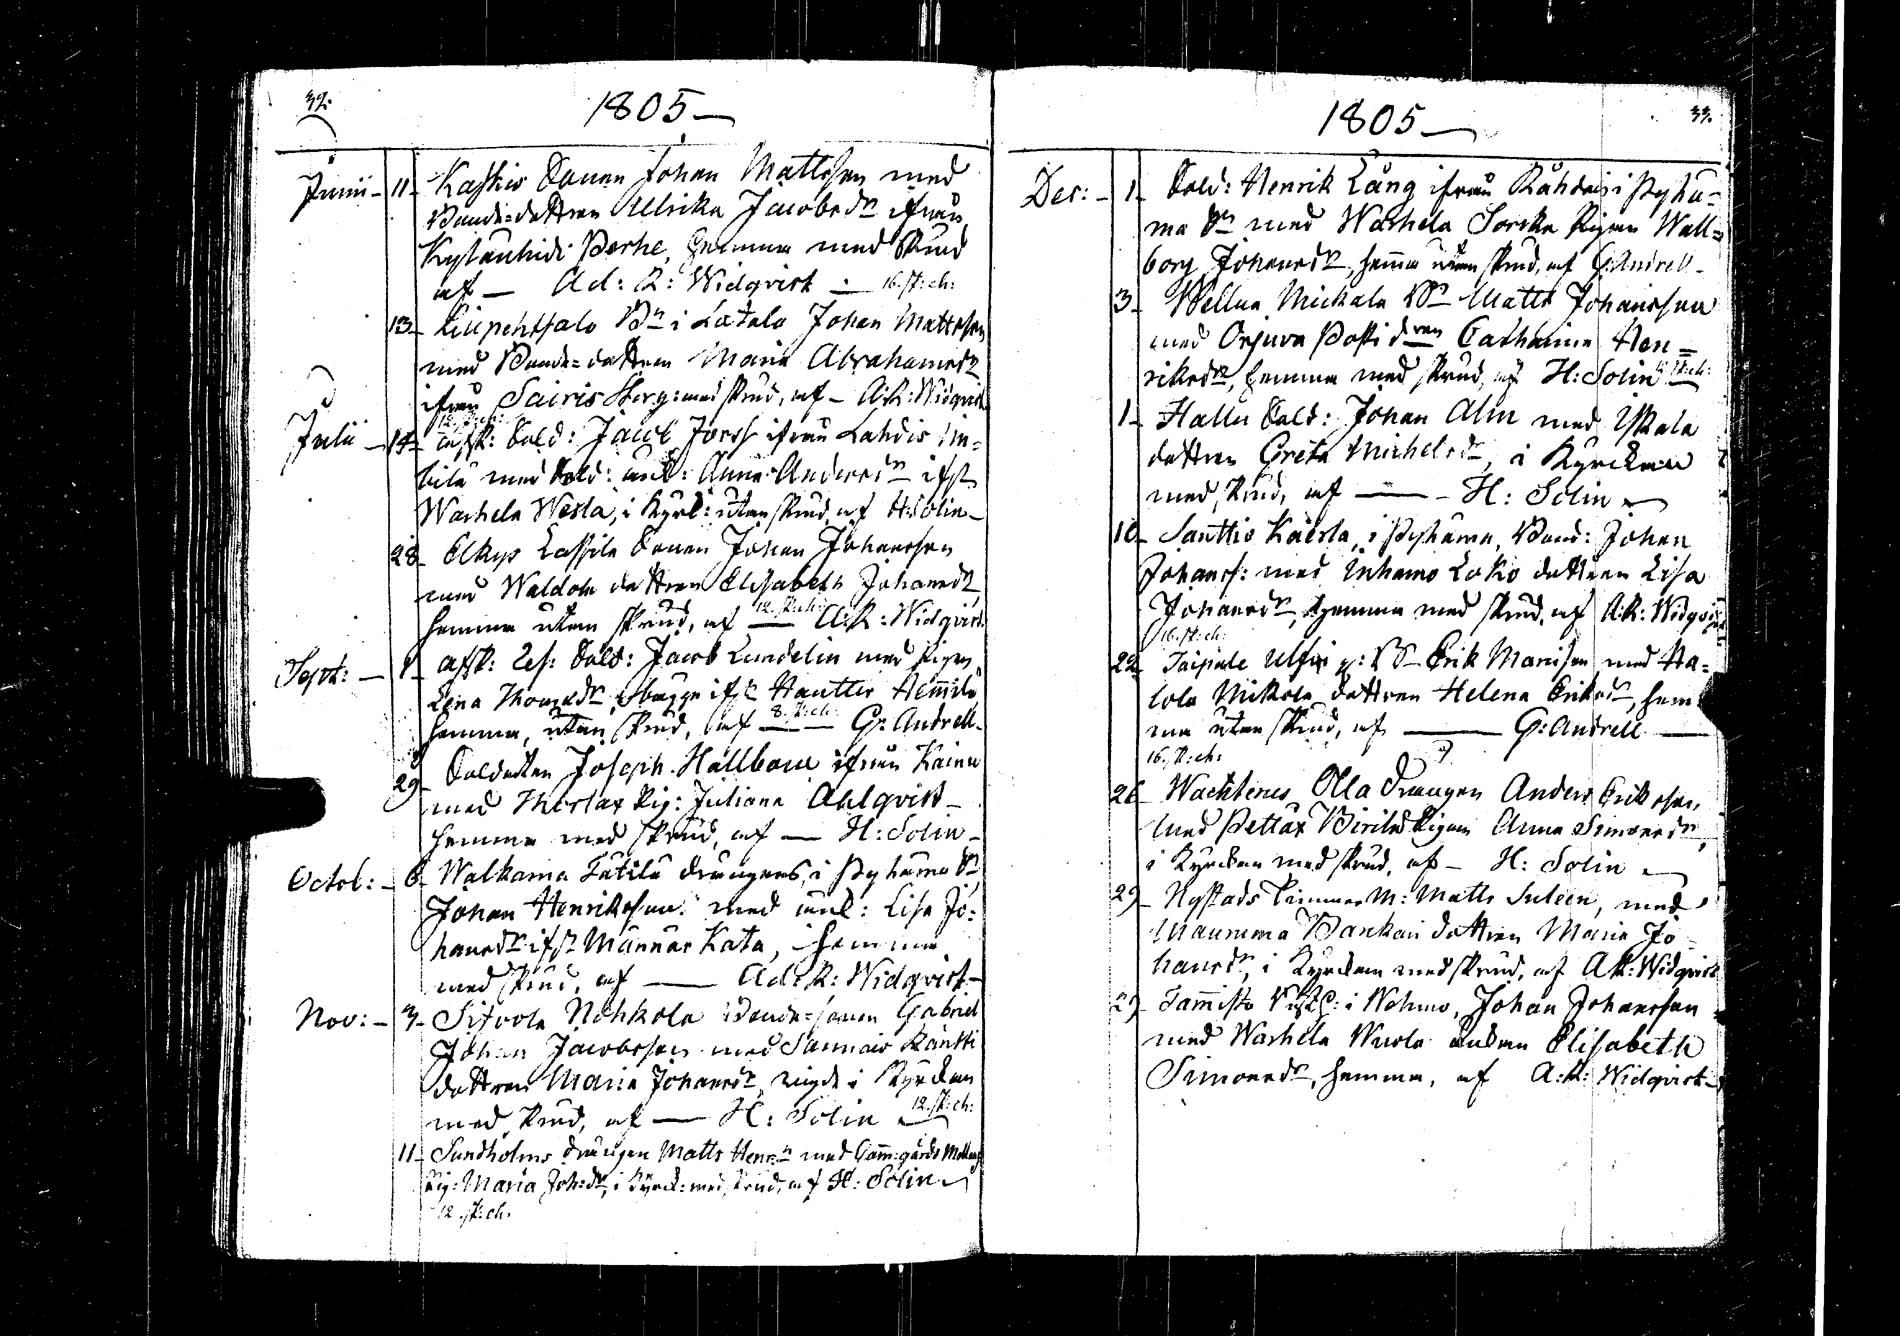 32.
1805
Junii 11 Kaskis Sonen Johan Mattsson med
Bonde-dottren Ulrika Jacobsdr ifrån
Kylänhidi Perhe, hemma med skrud
af Ad: R: Widqvist 16.sk:ch:
13 Bn i Latala Johan Mattsson
med Bonde-dottren Maria Abrahamsdr
ifrån Sairis med skrud, af A:R: Widqvist
Julii 14 afsk: Sold: Jacob Forss ifrån Lahdis Un-
tila med Sold: enk: Anna Andersdr ifr
Warhela Westa, i Kyrk: utan skrud af H: Solin
28 Elkys Lassila Sonen Johan Johansson
med Waldola dottren Elisabeth Johansdr
hemma utan skrud, af 12.sk:ch: A:R: Widqvist
Sept: 1 afsk: Sold: Jacob Lundelin med Pigan
Lena Thomasdr, bägge ifr Hautlis Hemmilä
hemma, utan skrud, af 8.sk:ch: G: Andrell
29 Soldaten Joseph Hällbom ifrån Kainu
med Pig: Juliana Ahlqvist
hemma med skrud, af H: Solin
Octob: 6 Walkama Tätilä drängens, i Pyhäma Sn
Johan Henriksson med enk: Lisa Jo-
hansdr ifr Männäs Kata, hemma
med skrud, af Ad: R: Widqvist
Nov: 3 Sifvola Nohkola Bonde-sonen Gabriel
Johan Jacobsson med Sannais Räntti
dottren Maria Johansdr, vigde i Kyrckan
med skrud, af H: Solin 12.sk:ch:
11 Sundholms drängen Matts Henr:n med Gam:gårds
Pig: Maria Joh:dr, i Kyrck: med skrud, af H: Solin
12.sk:ch.
33.
1805
Dec: 1 Sold: Henrik Lång ifrån i Pyhä-
ma Sn med Warhela Sorcka Pigan Wall-
borg Johansdr, hemma utan skrud, af G: Andrell
3 Wellua Mickala Bn Matts Johansson
med Orjuva Possi dren Catharina Hen-
riksdr, hemma med skrud, af H: Solin
1 Hallu Sold: Johan Alin med Iskala
dottren Greta Michelsdr, i Kyrckan
med skrud, af H: Solin
10 Santtis Kaisla, i Pyhäma, Bond: Johan
Johanss: med Inhamo Lokio dottren Lisa
Johansdr, hemma med skrud, af A:R: Widqvist
16.sk:ch:
22 Taipale Ulfvi Bn Erik Marisson med Ha-
lola Mikola dottren Helena Eriksdr, hem-
ma utan skrud, af G: Andrell
16.sk:ch:
26 Wachteries Olla Drängen Anders Eriksson,
med Pettäx Birilä Pigan Anna Simonsdr,
i Kyrckan med skrud, af H: Solin
29 Nystads Timmer M: Matts Juleen, med
Maunuma Bankari dottren Maria Jo-
hansdr, i Kyrckan med skrud, af A:R: Widqvist
29 Tammisto i Wehmo, Johan Johansson
med Warhela Wuola änckan Elisabeth
Simonsdr, hemma, af A:R: Widqvist